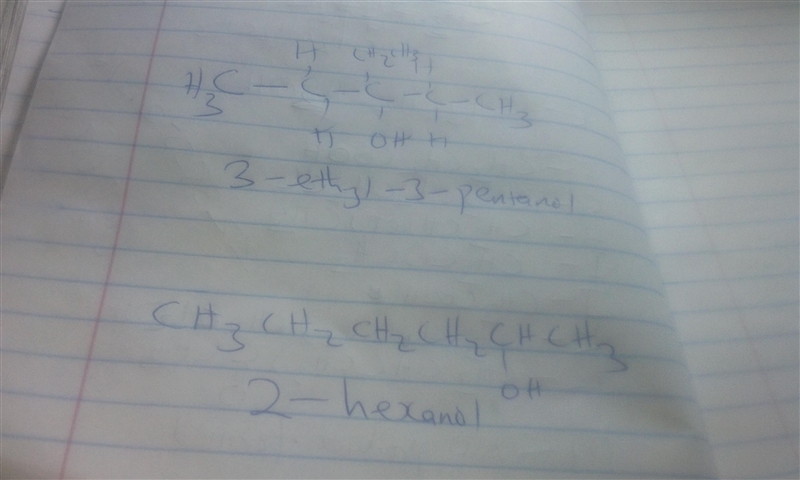 H CH2CH3 H
H3C - C - C - C - CH3
H OH H
3-ethyl-3-pentanol
CH3CH2CH2CH2CHCH3
OH
2-hexanol